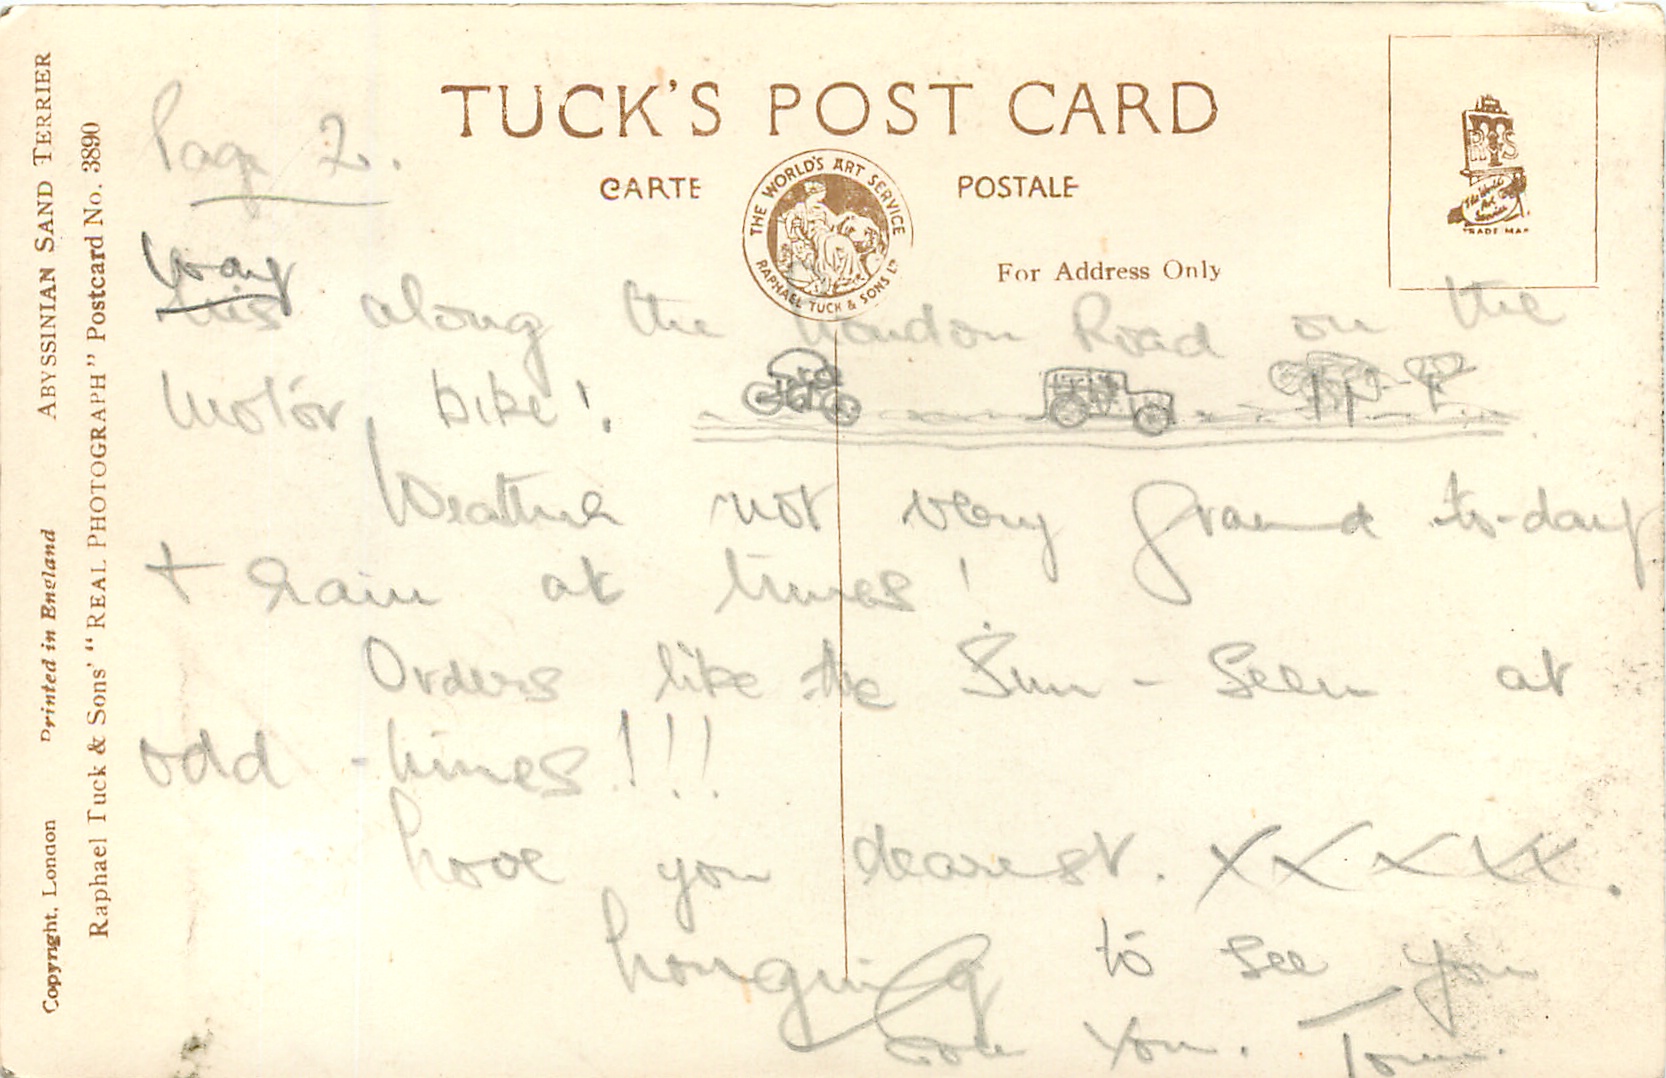 TUCK'S POST CARD
CARTE POSTALE
THE WORLD'S ART SERVICE
RAPHAEL TUCK & SONS LTD
For Address Only
The World's Art Service
TRADE MARK
ABYSSINIAN SAND TERRIER
Raphael Tuck & Sons' "REAL PHOTOGRAPH" Postcard No. 3890
Printed in England
Copyright, London
Page 2.
way
this along the London Road on the
motor bike!
Weather not very grand to-day
+ rain at times!
Orders like the Sun - Seen at
odd - times!!!
Love you dearest. X X X X X.
Longing to see you
You.